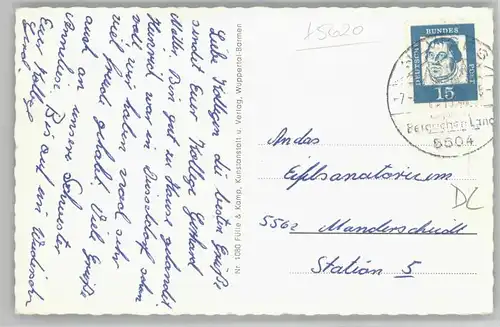 Liebe Kollegin die besten Grüße
sendet Euer Kollege Gerhard
Noth. Bin gut zu Hause gelandet
Himmel war in Düsseldorf schon
voll wir haben noch sehr
viel Freude gehabt. Viele Grüße
auch an unsere Schwester
Annelie. Bis auf ein Wiedersehn
Euer Kollege
Gerd.
Nr. 1090 Fülle & Komp, Kunstanstalt u. Verlag, Wuppertal-Barmen
15620
DEUTSCHE BUNDES POST
15
Bergisches Land
5604
An das
Eifelsanatorium
5562 Manderscheidt
Station 5
DL